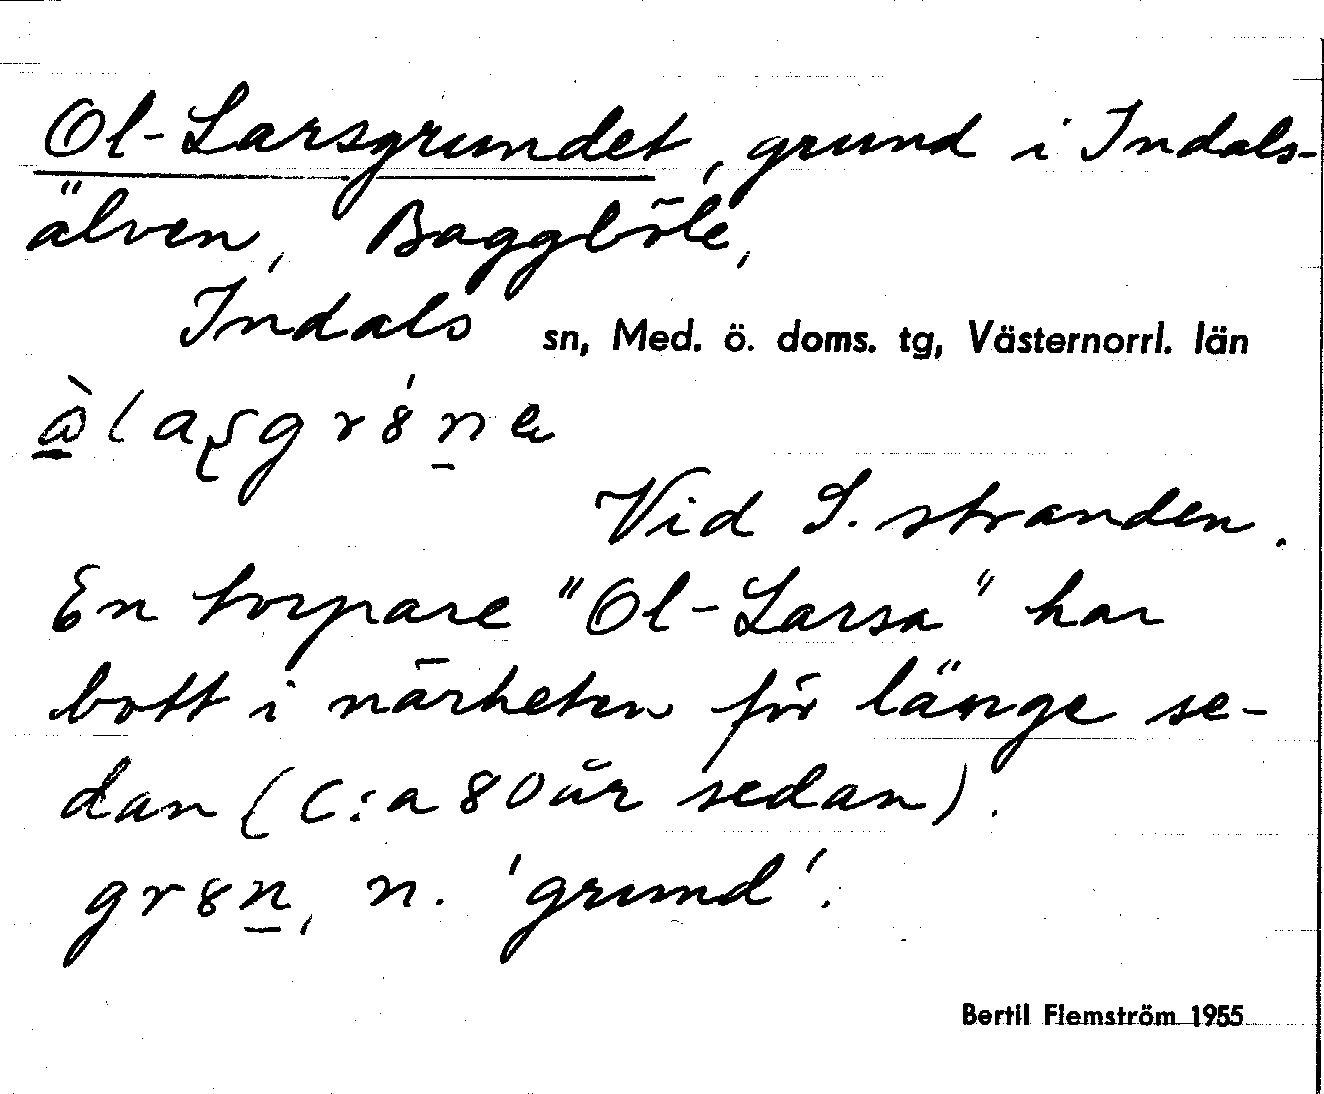 Ol-Larsgrundet, grund i Indals-
älven, Baggböle,
Indals sn, Med. ö. doms. tg, Västernorrl. län
Vid S. stranden.
En torpare "Ol-Larsa" har
bott i närheten för länge se-
dan (c:a 80 år sedan).
gr8n, n. 'grund'.
Bertil Flemström 1955